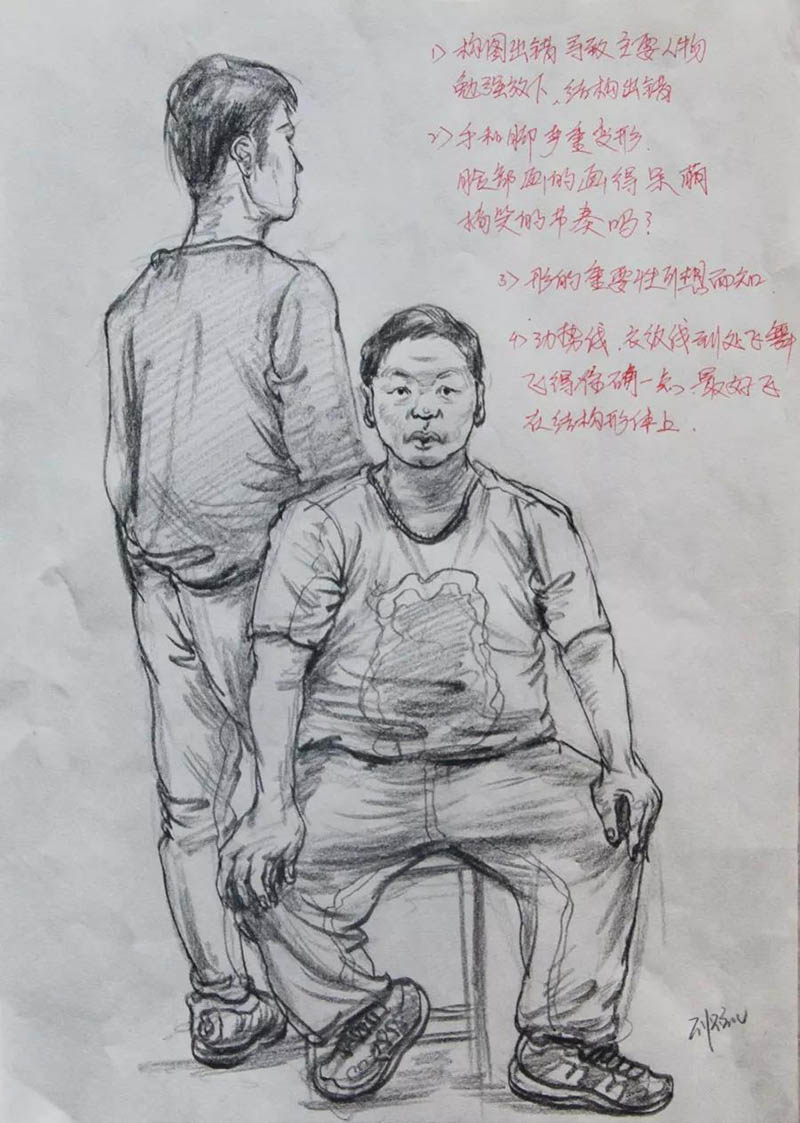 1> 构图出错 导致 主要人物
勉强放下、结构出错
2> 手和脚 严重变形.
脸部画的画得呆萌
搞笑的节奏吗?
3> 形的重要性可想而知.
4> 动势线、衣纹线到处飞舞
飞得准确一点、最好飞
在结构形体上.